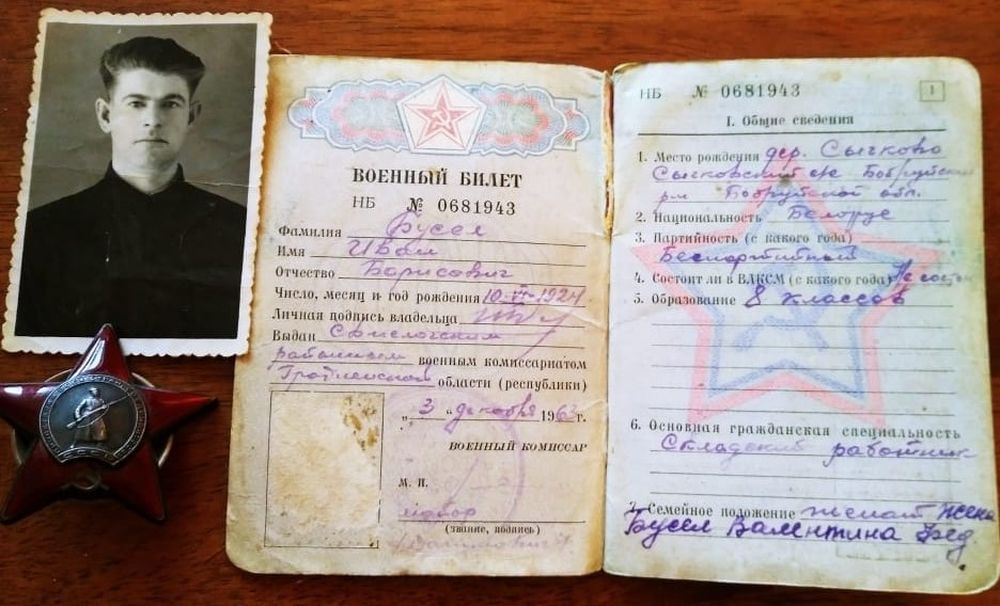 ВОЕННЫЙ БИЛЕТ
НБ № 0681943
Фамилия Бусел
Имя Иван
Отчество Борисович
Число, месяц и год рождения 10-VI-1924
Личная подпись владельца
Выдан Свислочским
районным военным комиссариатом
Гродненской области (республики)
„3“ декабря 1963 г.
ВОЕННЫЙ КОМИССАР
М. П.
майор
(звание, подпись)
НБ № 0681943 1
I. Общие сведения
1. Место рождения дер. Сычково
Сычковский с/с Бобруйский
р-н Бобруйской обл.
2. Национальность Белорус
3. Партийность (с какого года)
Беспартийный
4. Состоит ли в ВЛКСМ (с какого года) Не состоит
5. Образование 8 классов
6. Основная гражданская специальность
Складской работник
7. Семейное положение женат жена
Бусел Валентина Фед.